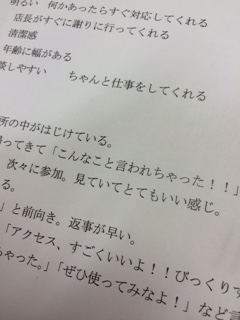 明るい　何かあったらすぐ対応してくれる
店長がすぐに謝りに行ってくれる
清潔感
年齢に幅がある
しやすい　ちゃんと仕事をしてくれる
所の中がはじけている。
ってきて「こんなこと言われちゃった！！」
次々に参加。見ていてとてもいい感じ。
る。
」と前向き。返事が早い。
「アクセス、すごくいいよ！！びっくりす
ちゃった。」「ぜひ使ってみなよ！」など言